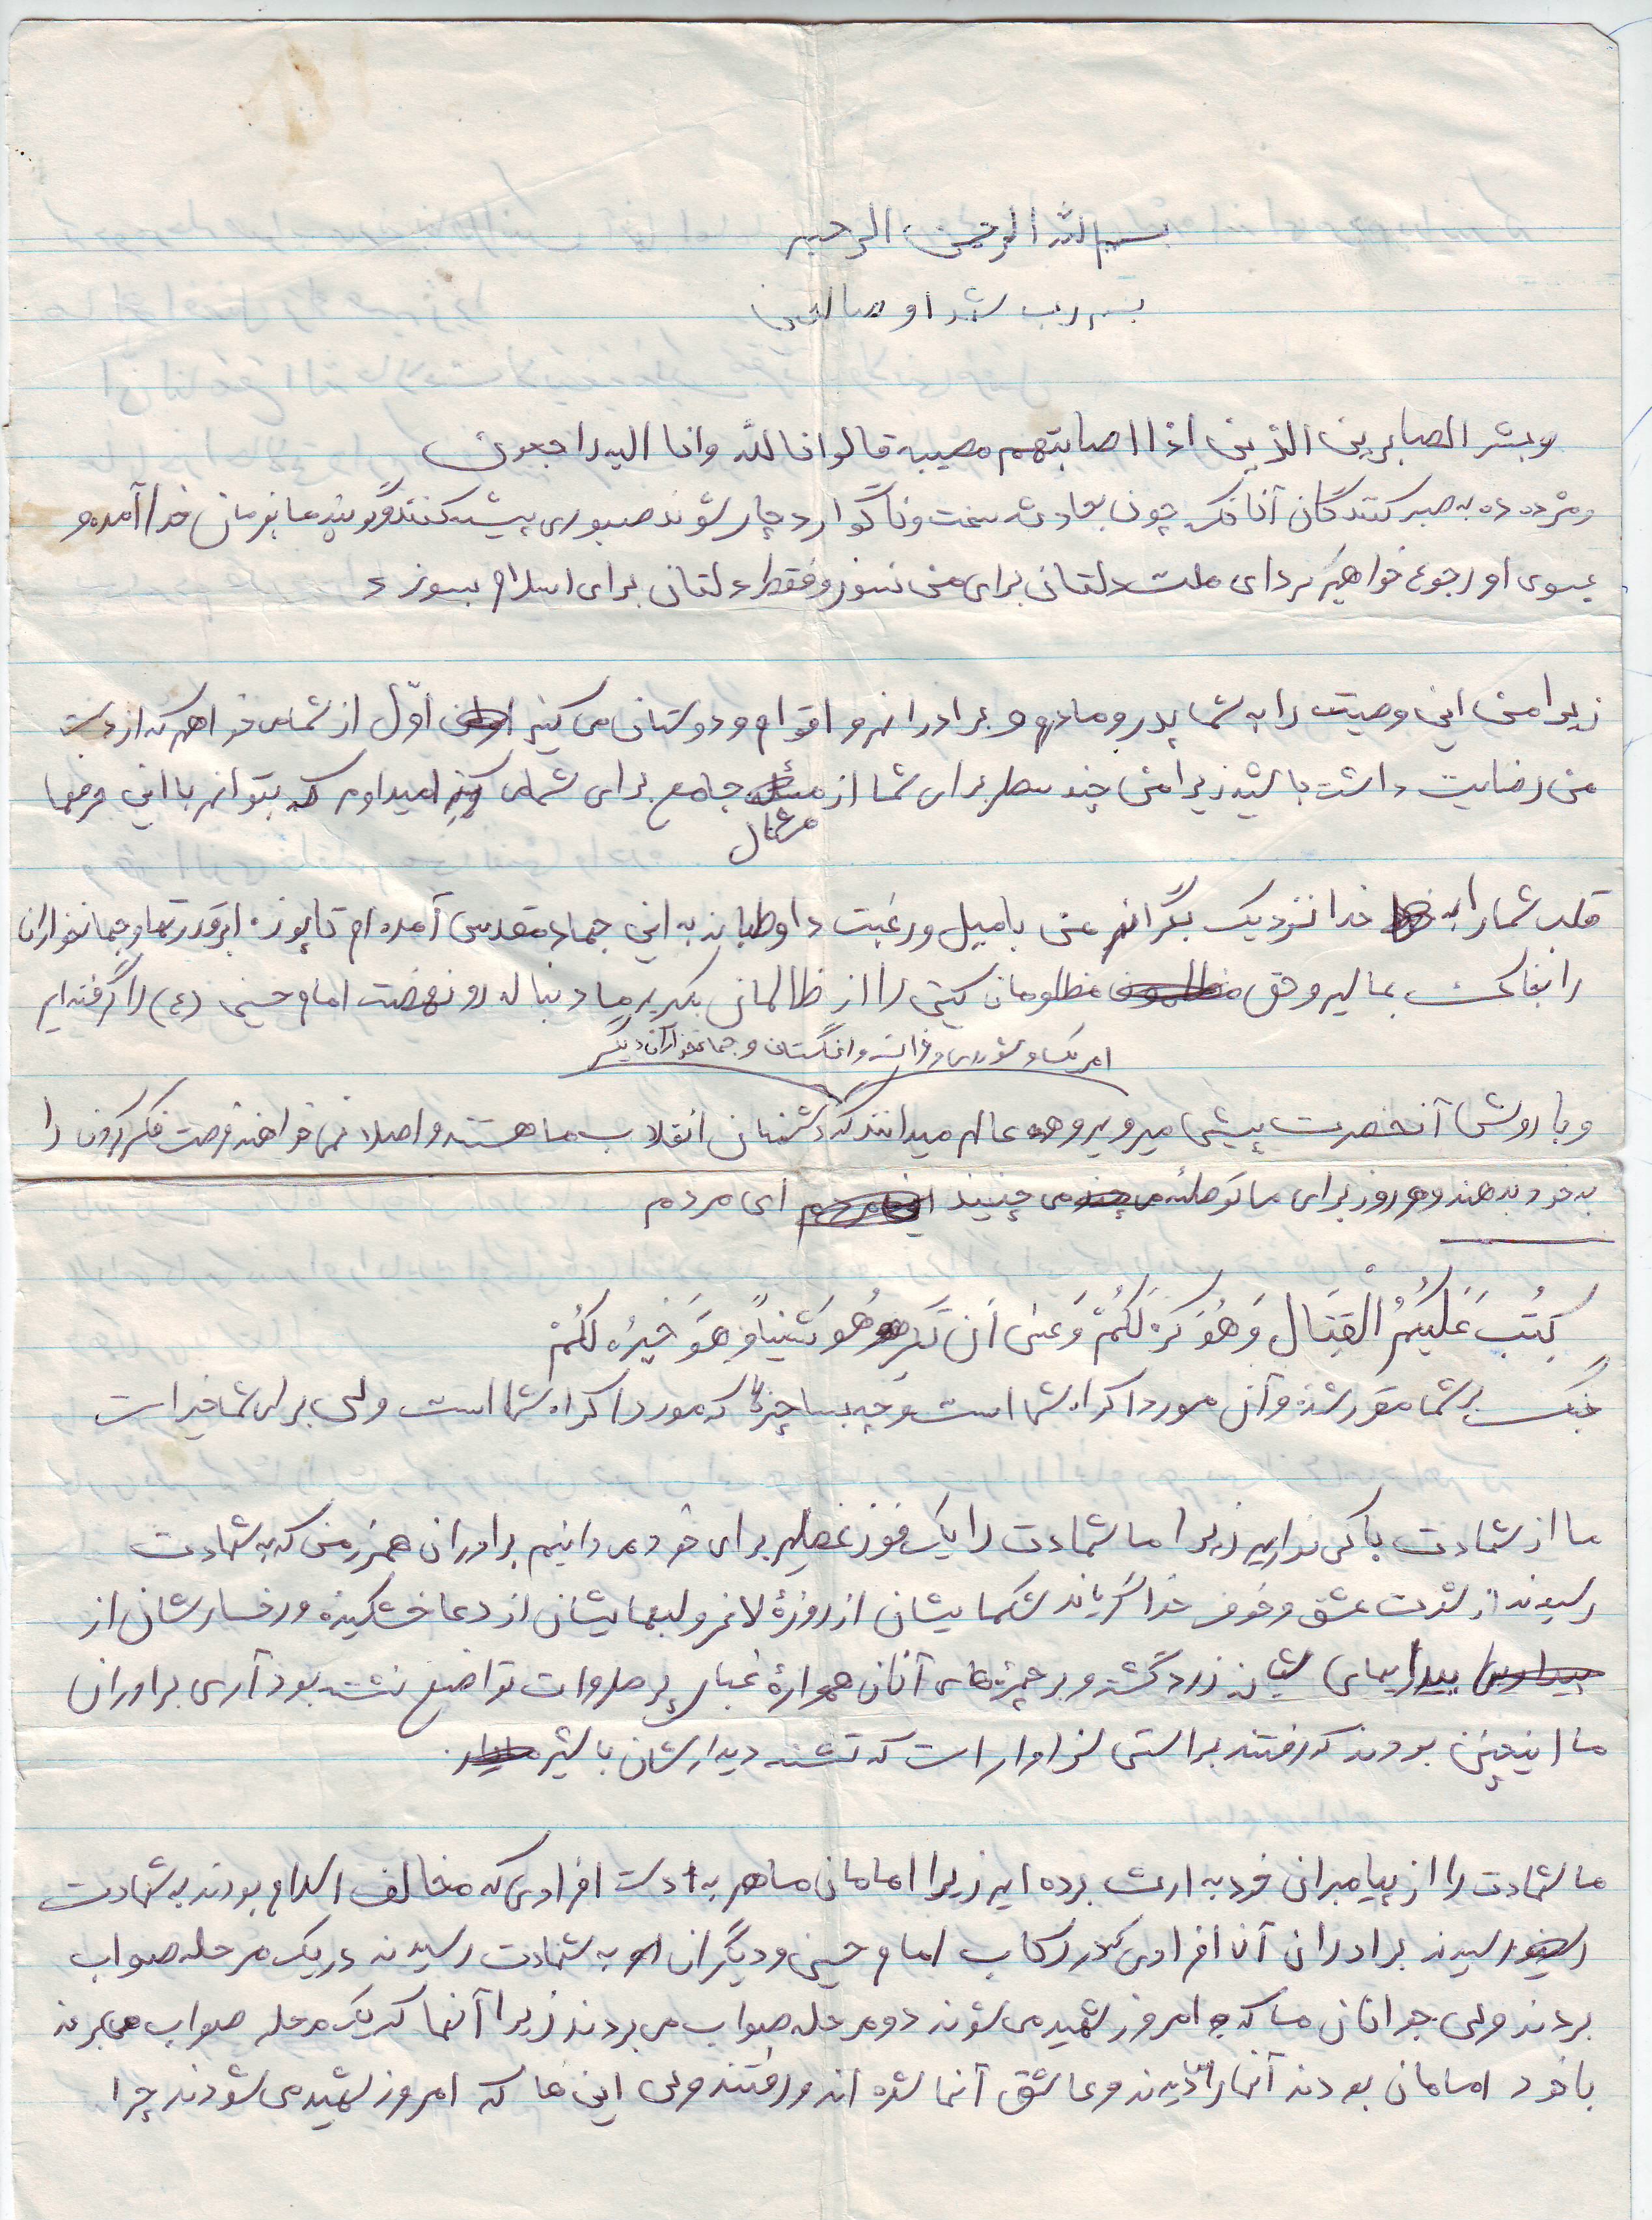 بسم الله الرحمن الرحیم
بسم رب شهدا و صالحین
وبشر الصابرین الذین اذا اصابتهم مصیبه قالوا انا لله وانا الیه راجعون
ومژده ده به صبر کنندگان آنانکه چون بحادثه سخت وناگوار دچار شوند صبوری پیشه کنند وگویند ما بفرمان خدا آمده و
بسوی او رجوع خواهیم کرد ای ملت دلتان برای من نسوزد فقط دلتان برای اسلام بسوزد
زیرا من این وصیت را به شما پدر و مادرم و برادرانم و اقوام و دوستانی می کنم اول از شما می خواهم که از دست
من رضایت داشته باشید زیرا من چند سطر برای شما از مسئله جامع برای شما می کنم امیدوارم که بتوانم با این حرفها
مثال
قلب شما را به خدا نزدیک بگردانم من با میل و رغبت داوطلبانه به این جهاد مقدس آمده ام تا پوزه ابرقدرتها و جهانخواران
را بخاک بمالیم و حق مظلومان گیتی را از ظالمان بگیریم ما دنباله رو نهضت امام حسین (ع) را گرفته ایم
امریکا و شوروی و فرانسه و انگستان و جهانخواران دیگر
و با روش آنحضرت پیش میرویم و همه عالم میدانند که دشمنان انقلاب ما هستند و اصلا نمی خواهند فرصت فکر کردن را
به خود بدهند و هر روز برای ما توطئه می چینند ای مردم
کُتِبَ عَلَیکُمُ الْقِتال وَ هُوَ کُرهٌ لَکُمْ وَ عَسٰی اَن تَکرَهو شَیئاً وَ هوَ خَیرٌ لکُمْ
جنگ بر شما مقرر شده و آن مورد اکراه شما است و چه بسا چیزی که مورد اکراه شما است ولی برای شما خیر است
ما از شهادت باکی نداریم زیرا ما شهادت را یک فوز عظیم برای خود می دانیم برادران همرزمم که به شهادت
رسیدند از شدت عشق و خوف خدا گریانند شکمهایشان از روزهٔ لاغر و لبهایشان از دعا خشکیده و رخسارشان از
بیداریهای شبانه زرد گشته و بر چهره های آنان همواره غبار پر طروات تواضع نشسته بود آری برادران
ما اینچنین بودند که رفتند براستی سزاوار است که تشنه دیدارشان باشیم
ما شهادت را از پیامبرانی خود به ارث برده ایم زیرا امامان ما هم به دست افرادی که مخالف اسلام بودند به شهادت
رسیدند برادران آن افرادی که در رکاب امام حسین و دیگران به شهادت رسیدند در یک مرحله صواب
بردند ولی جوانان ما که امروز شهید می شوند دو مرحله صواب می بردند زیرا آنها که یک مرحله صواب می برند
با خود امامان بودند آنها را دیدند و عاشق آنها شده اند و رفتند ولی این ها که امروز شهید می شوند چرا